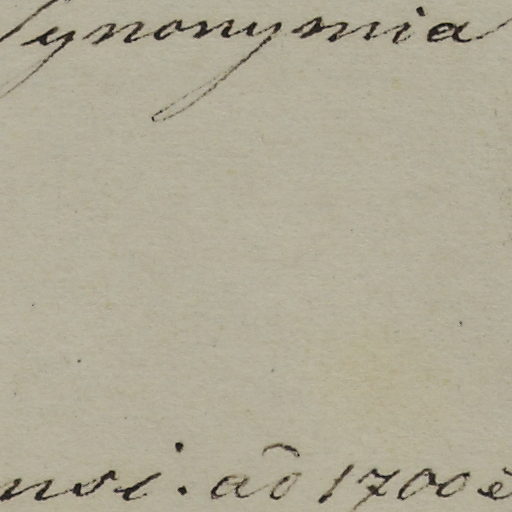 Synonymia
nsi. aō 1700 è